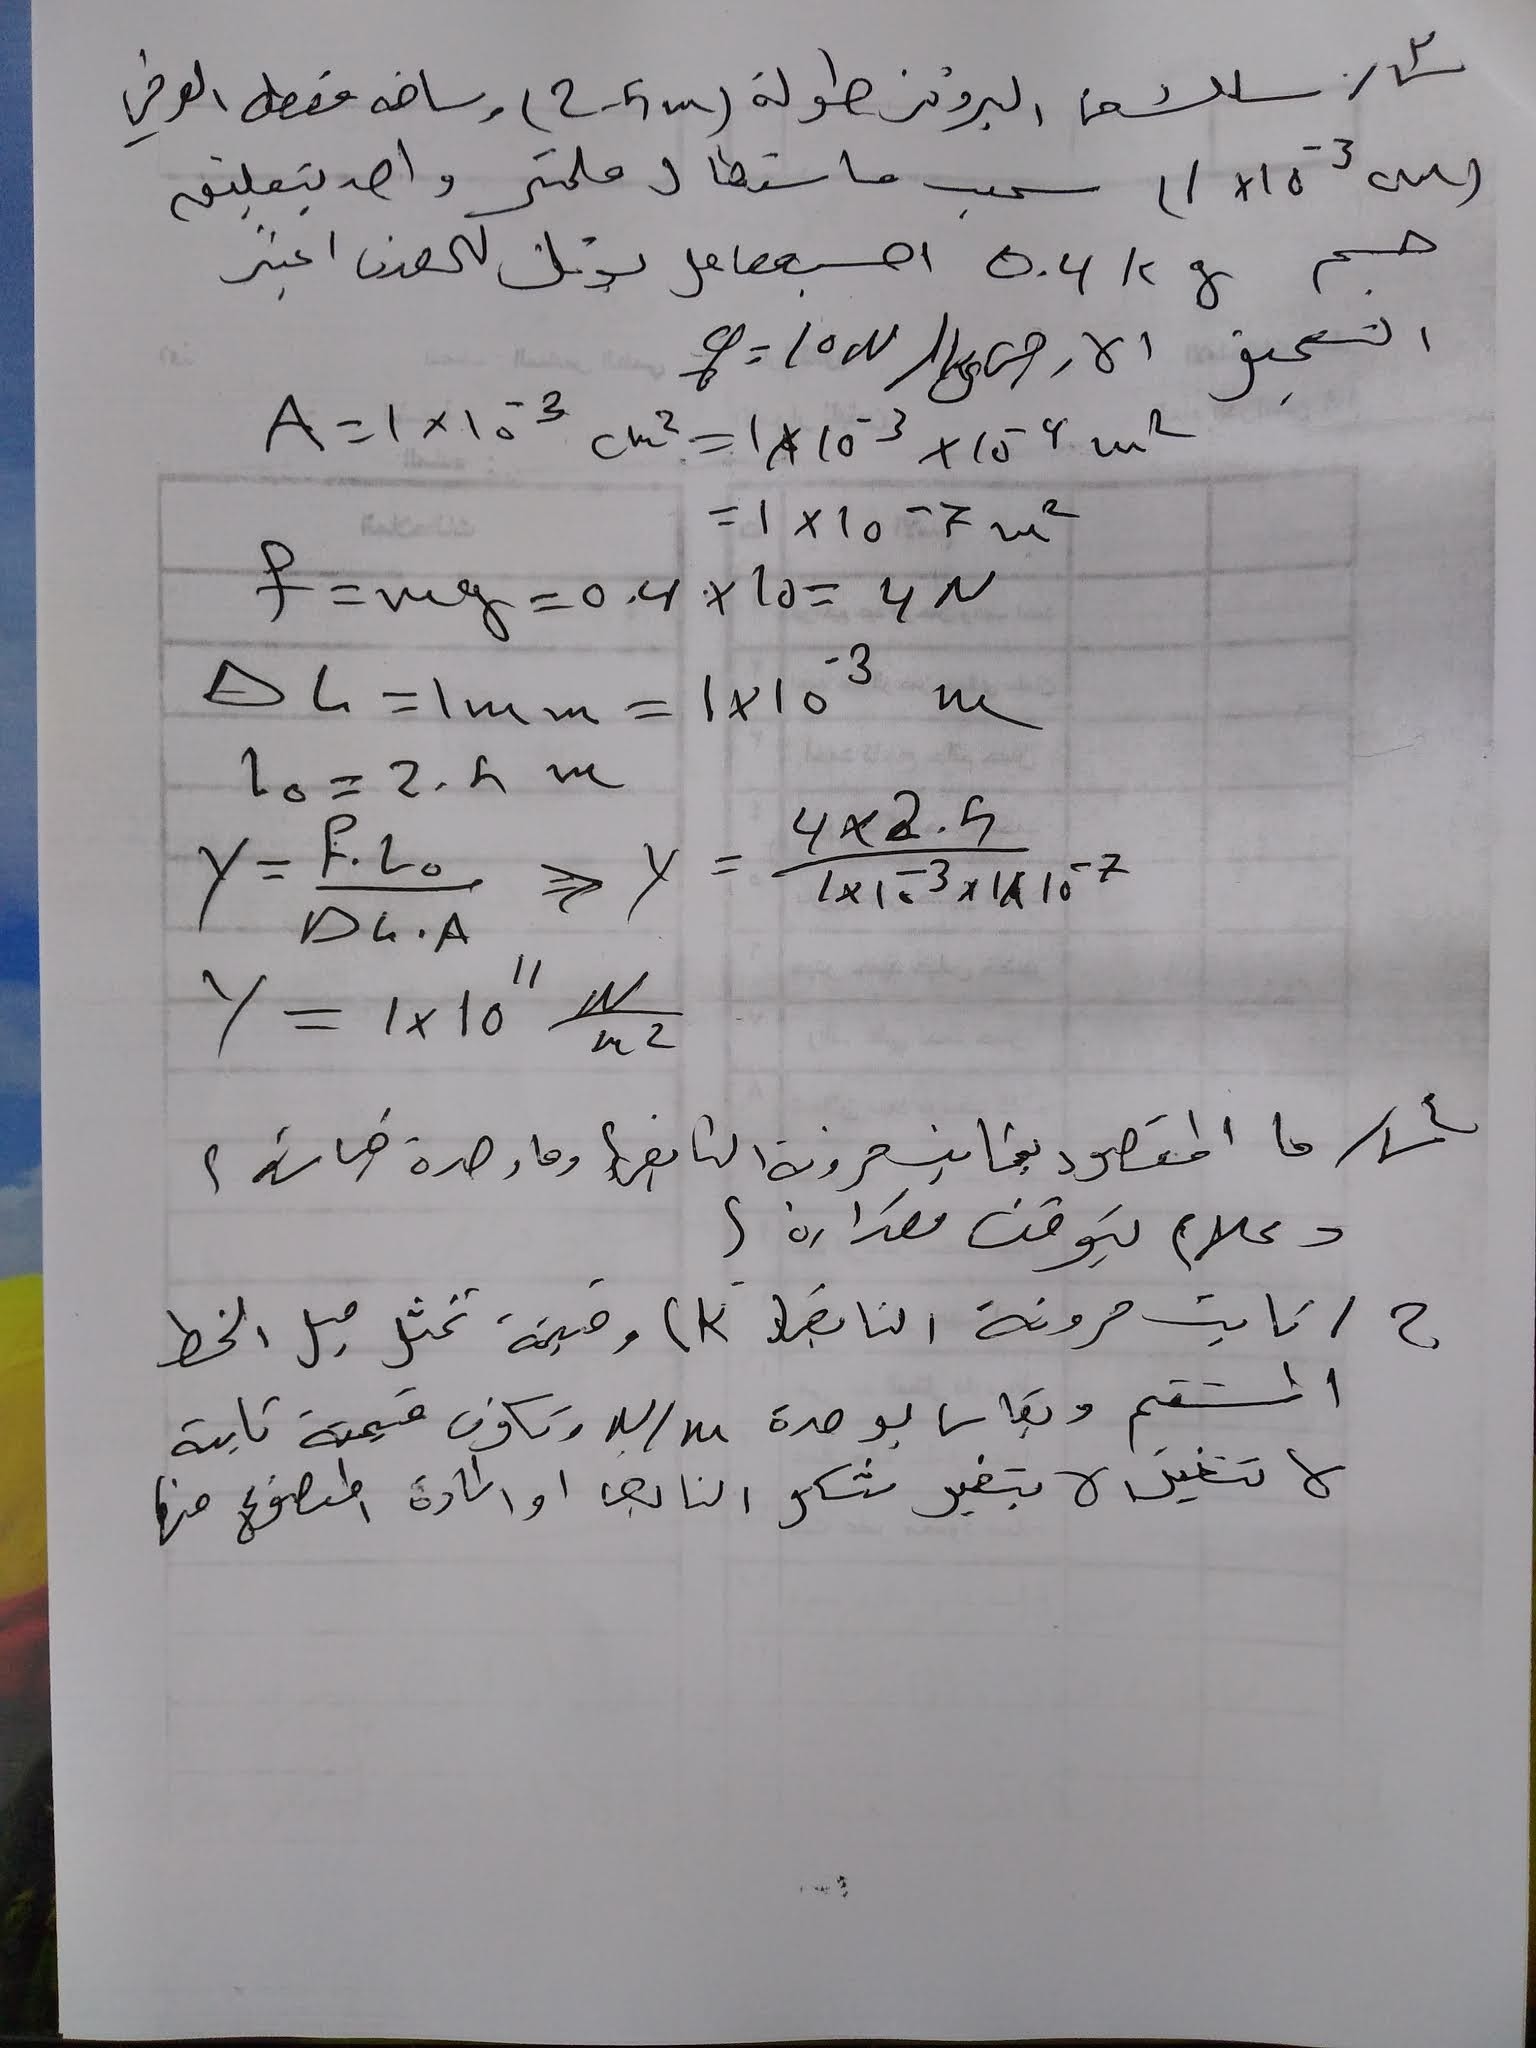 س٣/ سلك من البرونز طولة (2.5m) ومساحه مقطعه العرضي
(1×10⁻³ cm) سحب فاستطال ملمتر واحد بتعليق
جسم 0.4 kg احسب معامل يونك للمعدن اعتبر
التعجيل الارضي g=10N/kg
A=1×10⁻³ cm²=1×10⁻³×10⁻⁴ m²
=1×10⁻⁷ m²
F=mg=0.4×10=4N
ΔL=1mm=1×10⁻³ m
L₀=2.5 m
Y=F.L₀/ΔL.A ⇒ Y=4×2.5/1×10⁻³×1×10⁻⁷
Y=1×10¹¹ N/m²
س٤/ ما المقصود بثابت مرونة النابض وما وحدة قياسة ؟
وعلام يتوقف مقدارة ؟
ج/ ثابت مرونة النابض (K) وقيمة تمثل ميل الخط
المستقيم ويقاس بوحدة N/m وتكون قيمتة ثابتة
لا تتغير الا بتغير شكل النابض او المادة المصنوع منها